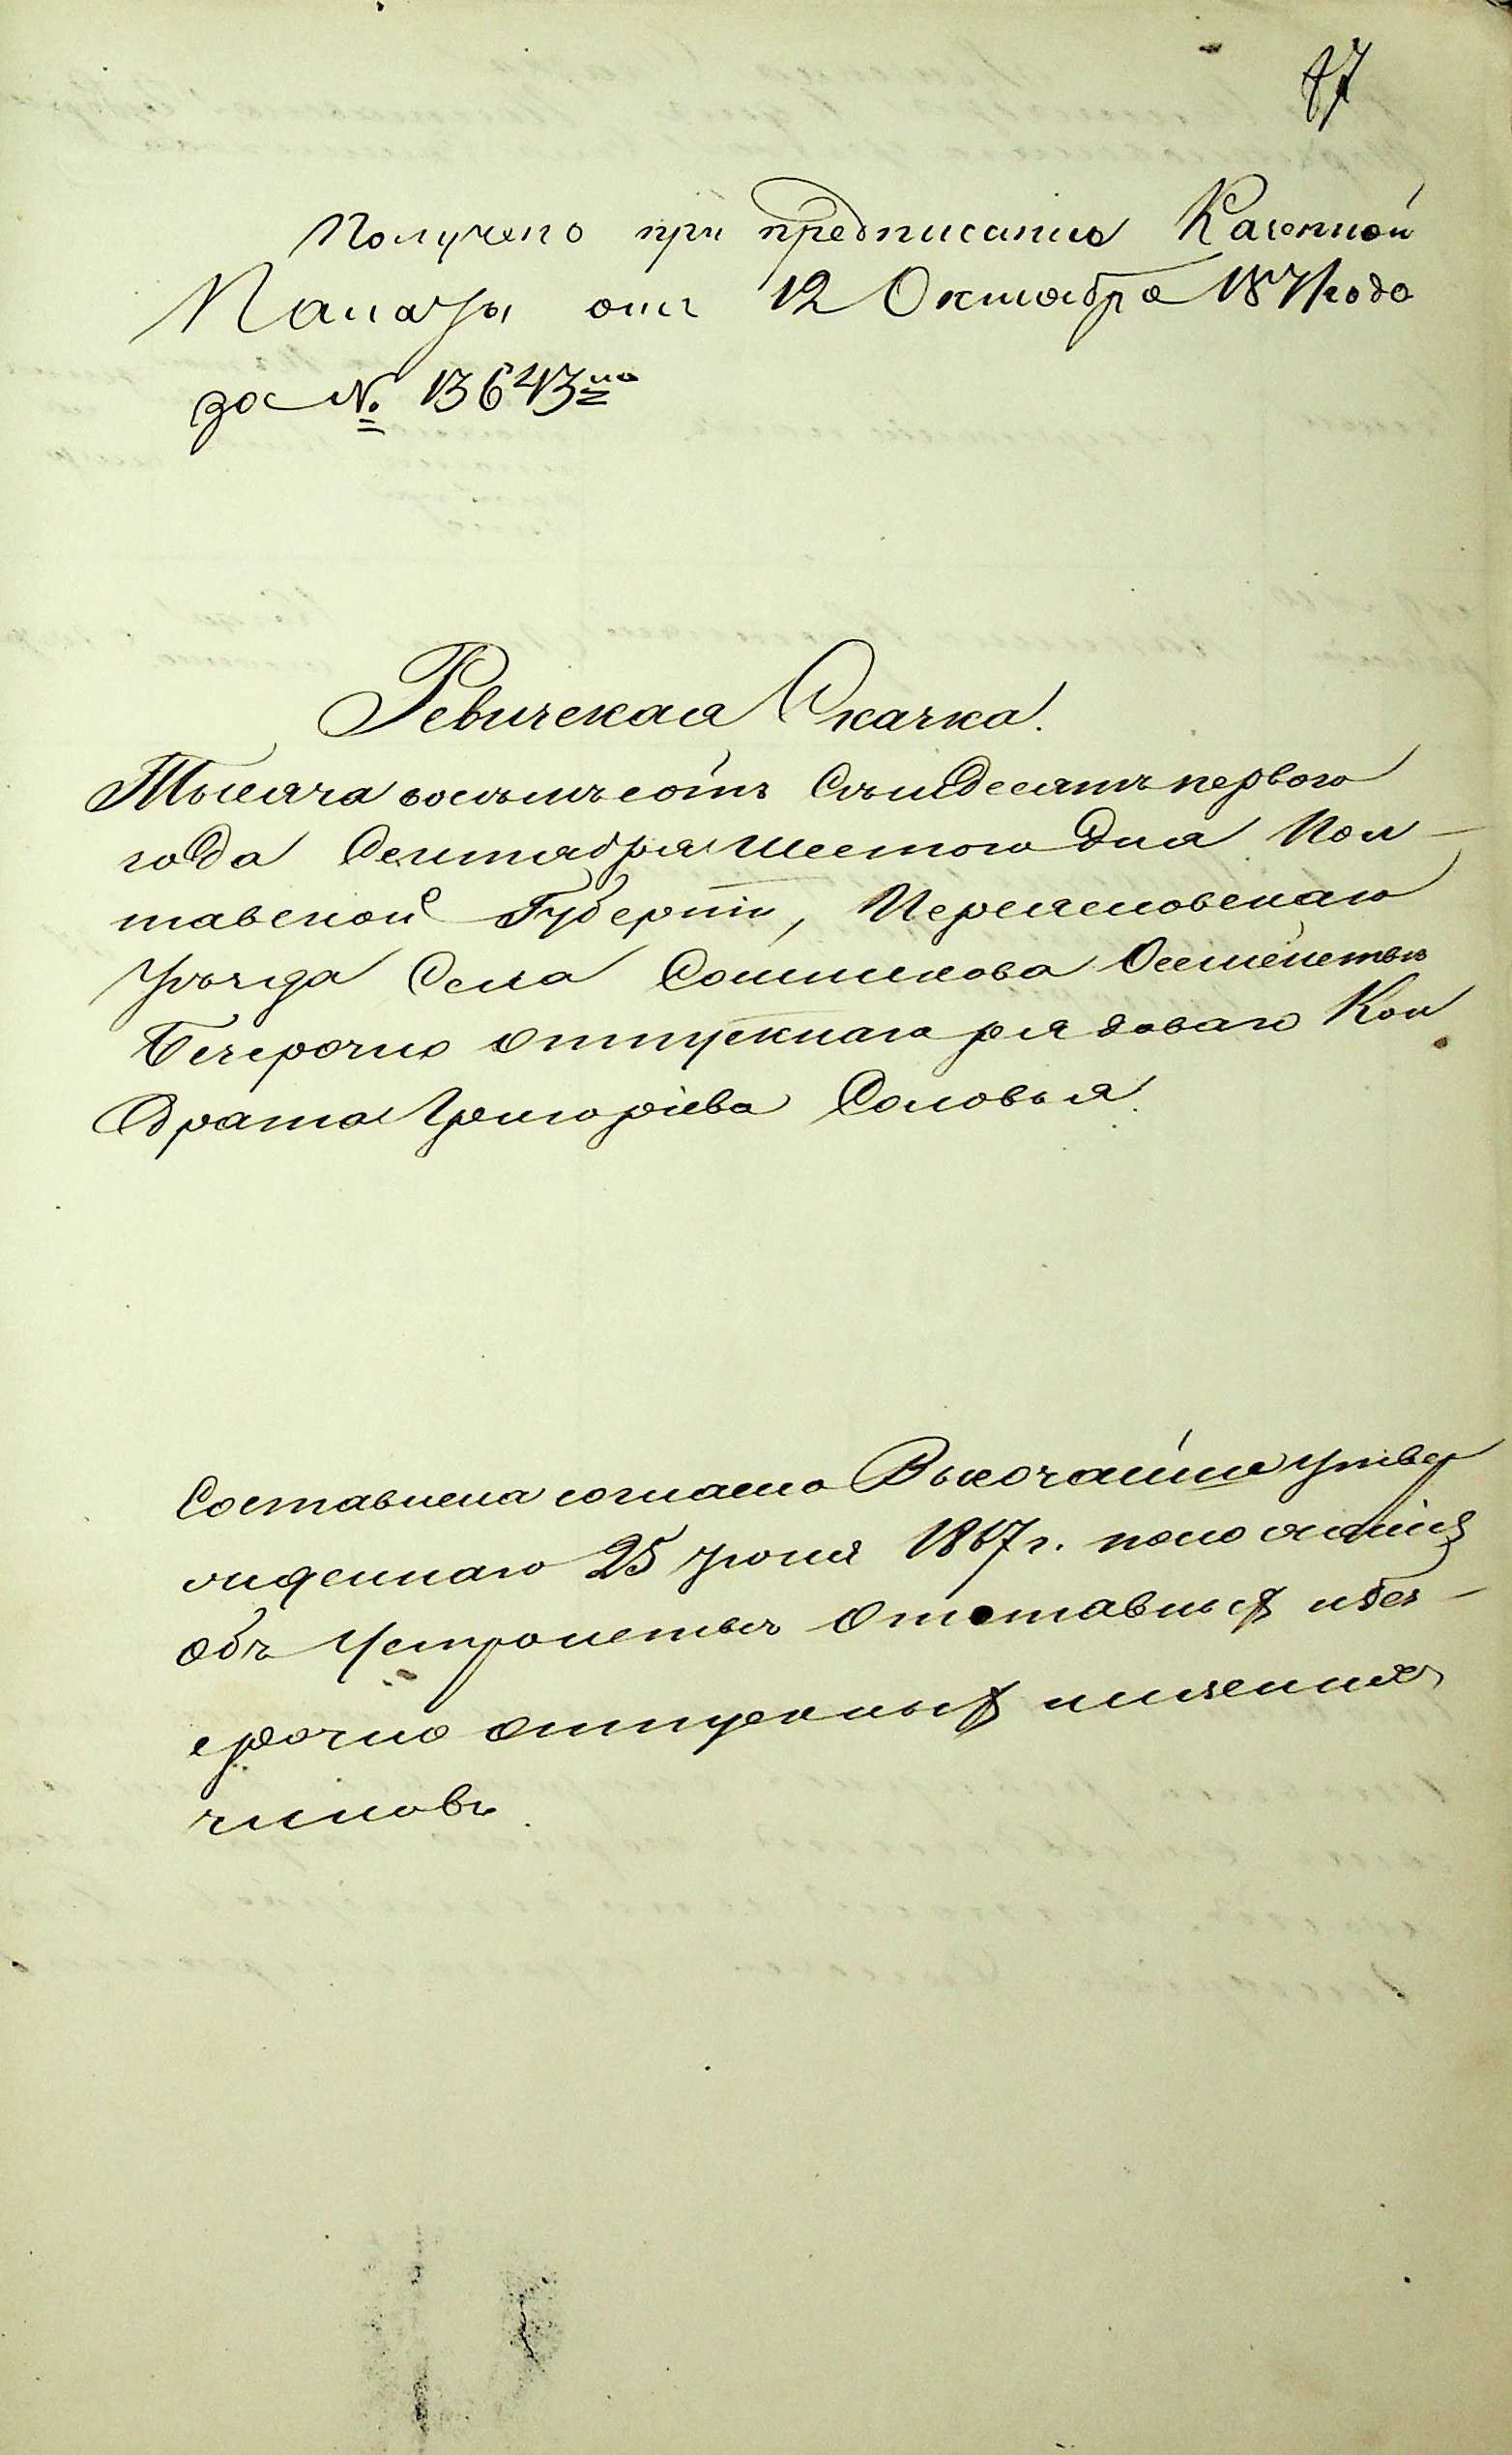 87
Получено при предписании Казенной
Палаты отъ 12 Октября 1871 года
за № 13643мъ
Ревизская Сказка.
Тысяча восьмъсотъ Семдесятъ первого
года Сентября шестого Дня Пол-
тавской Губерніи, Переясловскаго
Уѣзда Села Сошникова О семействѣ
Безсрочно отпускнаго рядоваго Кон
драта Григоріева Соловья.
Составлена согласно Высочайше утвер
жденнаго 25 Іюня 1867 г. положенія
объ Устройствѣ отставныхъ и без-
срочно отпускныхъ нижнихъ
чиновъ.